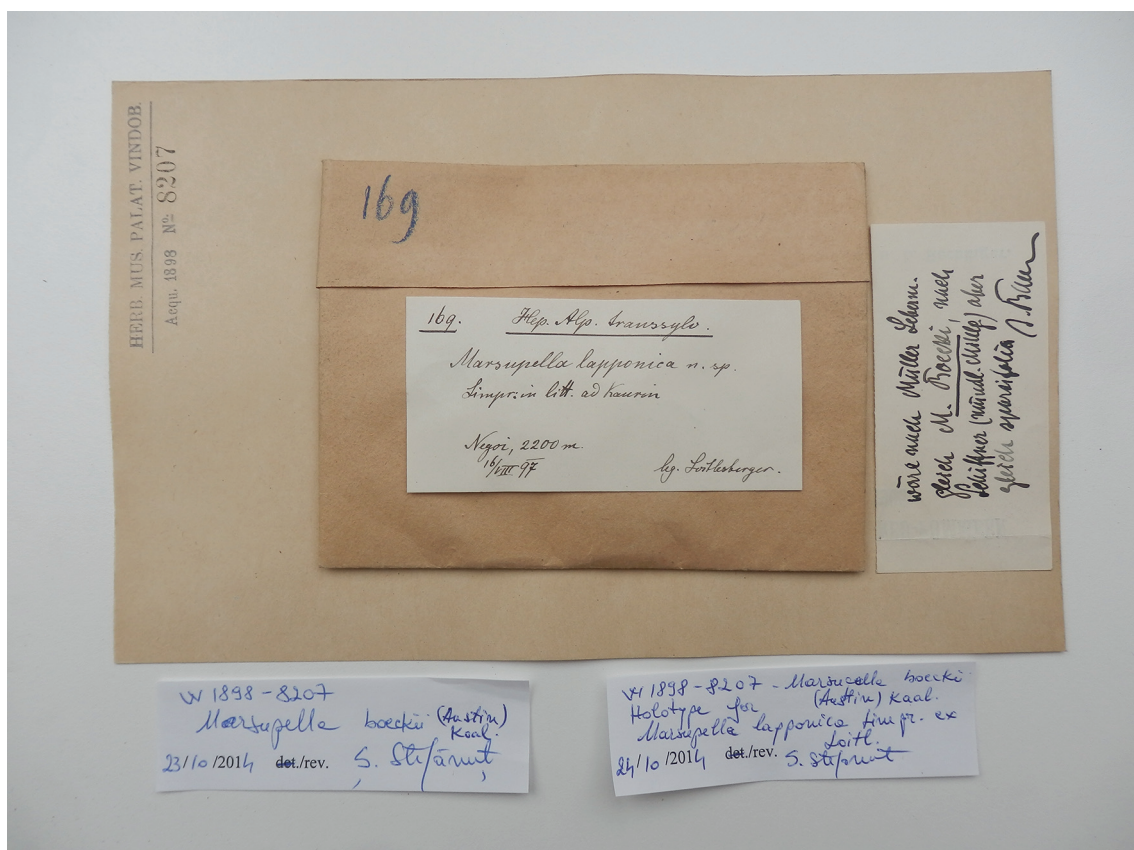 HERB. MUS. PALAT. VINDOB.
Acqu. 1898 No. 8207
169
169. Hep. Alp. transsylv.
Marsupella lapponica n. sp.
Limpr. in litt. ad Kaurin
Negoi, 2200 m.
16/VIII 97
lg. Loitlesberger.
wäre nach Müller Leberm.
gleich M. Boecki, nach
Schiffner (mündl. Mittlg) aber
gleich sparsifolia J. Baum
W 1898-8207
Marsupella boeckii (Austin)
Kaal.
23/10/2014 det./rev. S. Ștefănuț
W 1898-8207 - Marsucella boeckii
Holotype for (Austin) Kaal.
Marsupella lapponica Limpr. ex
Loitl.
24/10/2014 det./rev. S. Ștefănuț